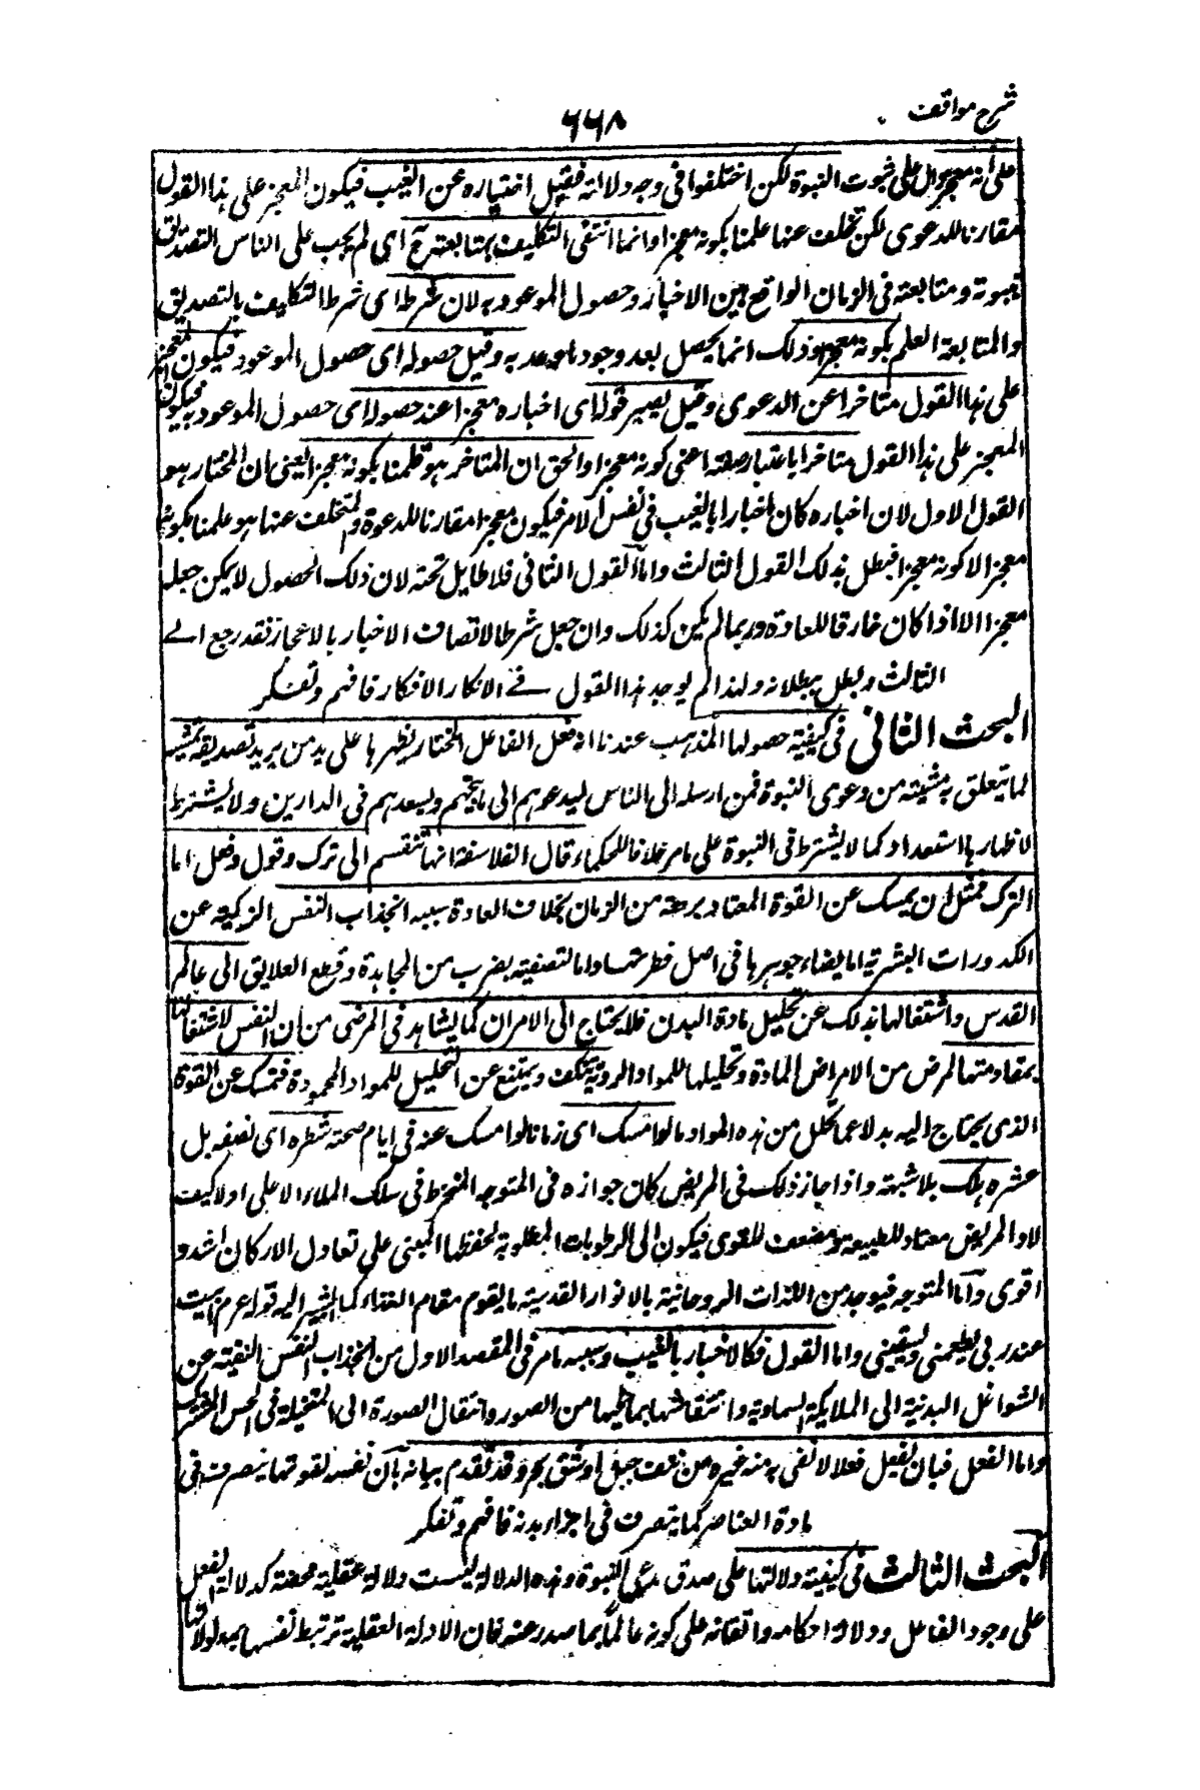 شرح مواقف
٦٦٨
على أنه معجز دال على ثبوت النبوة لكن اختلفوا فى وجه دلالته فقيل اختياره عن الغيب فيكون المعجز على هذا القول
مقارنا للدعوى لكن تخلف عنها علمنا بكونه معجزا وانما انتفى التكليف بمتابعته ح اى لم يجب على الناس التصديق
بنبوته ومتابعته فى الزمان الواقع بين الاخبار وحصول الموعود به لان شرطه اى شرط التكليف بالتصديق
والمتابعة العلم بكونه معجزا وذلك انما يحصل بعد وجود ما وعد به وقيل حصوله اى حصول الموعود فيكون المعجز
على هذا القول متاخرا عن الدعوى وقيل يصير قوله اى اخباره معجزا عند حصوله اى حصول الموعود به فيكون
المعجز على هذا القول متاخرا باعتبار صفته اعنى كونه معجزا والحق ان المتاخر هو علمنا بكونه معجزا يعنى ان المختار هو
القول الاول لان اخباره كان اخبارا بالغيب فى نفس الامر فيكون معجزا مقارنا للدعوة والمتخلف عنها هو علمنا بكونه
معجزا لا كونه معجزا فبطل بذلك القول الثالث واما القول الثانى فلا طايل تحته لان ذلك الحصول لا يمكن جعله
معجزا الا اذا كان خارقا للعادة وربما لم يكن كذلك وان جعل شرطا لاتصاف الاخبار بالاعجاز فقد رجع الے
الثالث وبطل ببطلانه ولهذا لم يوجد هذا القول فے الابكار الافكار فافهم وتفكر
البحث الثانى فى كيفية حصولها المذهب عندنا انه فعل الفاعل المختار يظهرها على يد من يريد تصديقه بمشيته
لما يتعلق به مشيته من دعوى النبوة فمن ارسله الى الناس ليدعوهم الى ما ينجيهم ويسعدهم فى الدارين ولا يشترط
لاظهارها استعداد كما لا يشترط فى النبوة على ما مر خلافا للحكماء وقال الفلاسفة انها تنقسم الى ترك وقول وفعل اما
الترك فمثل ان يمسك عن القوة المعتاد برهة من الزمان بخلاف العادة سببه انجذاب النفس الزكية عن
الكدورات البشرية اما لصفاء جوهرها فى اصل فطرتها واما لتصفية بضرب من المجاهدة وقطع العلايق الى عالم
القدس واشتغالها بذلك عن تحليل مادة البدن فلا يحتاج الى الامران كما يشاهد فى المرضى من ان النفس لاشتغالها
بمقاومتها لمرض من الامراض المادة وتحليلها للمواد الردية تنكف ويمتنع عن التحليل للمواد المحمودة فتمسك عن القوة
الذى يحتاج اليه بدلا عما تحلل من هذه المواد ما لو امسك اى زمانا لو امسك عنه فى ايام صحته شطره اى نصفه بل
عشره هلك بلا شبهة واذا جاز ذلك فى المريض كان جوازه فى المتوجه المنخرط فى سلك الملاء الاعلى اولا كيف
لا والمريض مضاد للطبيعة ومضعف للقوى فيكون الى الرطوبات المطلوبة لحفظها المبنى على تعادل الاركان اشد و
اقوى واما المتوجه فيوجد من اللذات الروحانية بالانوار القدسية ما يقوم مقام الغذاء كما اشير اليه قوله عرم ابيت
عند ربى يطعمنى ويسقينى واما القول فكالاخبار بالغيب وسببه ما مر فى المقصد الاول من انجذاب النفس النقية عن
الشواغل البدنية الى الملايكة السماوية وانتقاشها بما فيها من الصور وانتقال الصورة الى المتخيلة فى الحس المشترك
واما الفعل فبان يفعل فعلا لا تفى به منة غيره من نتف جبل او شق بحر وقد تقدم بيانه بان نفسه لقوتها يتصرف فى
مادة العناصر كما يتصرف فى اجزاء بدنه فافهم وتفكر
البحث الثالث فى كيفية دلالتها على صدق مدعى النبوة وهذه الدلالة ليست دلالة عقلية محضة كدلالة الفعل
على وجود الفاعل ودلالة احكامه واتقانه على كونه عالما بما صدر عنه فان الادلة العقلية ترتبط نفسها بمدلولاتها